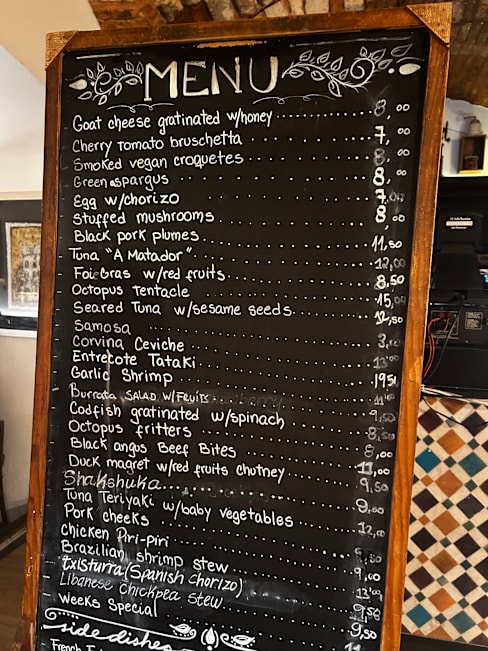 MENU
Goat cheese gratinated w/honey 8,00
Cherry tomato bruschetta 7,00
Smoked vegan croquetes 8,00
Green aspargus 8,00
Egg w/chorizo 7,00
Stuffed mushrooms 8,00
Black pork plumes 11,50
Tuna "A Matador" 12,00
Foi Gras w/red fruits 8,50
Octopus Tentacle 15,00
Seared Tuna w/sesame seeds 12,50
Samosa
Corvina Ceviche 13,00
Entrecote Tataki 19,50
Garlic Shrimp 11,00
Burrata SALAD W/FRUITS 9,50
Codfish gratinated w/spinach 8,50
Octopus fritters 8,00
Black angus Beef Bites 11,00
Duck magret w/red fruits chutney 9,50
Shakshuka 9,00
Tuna Teriyaki w/baby vegetables 12,00
Pork cheeks
Chicken Piri-piri 9,00
Brazilian shrimp stew 13,00
Txisturra (Spanish Chorizo) 9,50
Libanese Chickpea stew 9,50
Weeks Special
side dishes
French